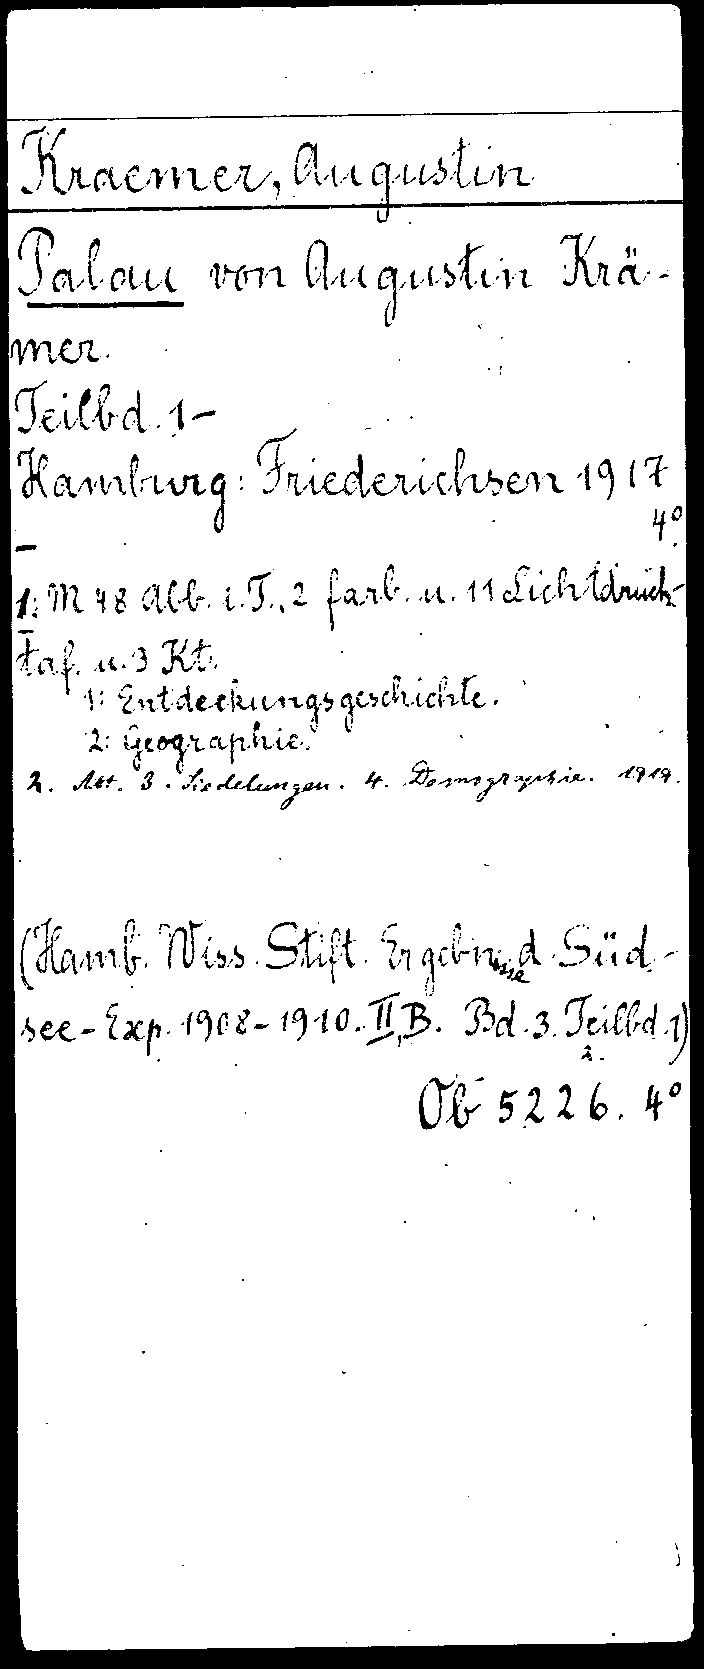 Kraemer, Augustin
Palau von Augustin Krä-
mer.
Teilbd. 1-
Hamburg: Friederichsen 1917
4°.
-
1: M 48 Abb. i. T., 2 farb. u. 11 Lichtdruck-
taf. u. 3 Kt.
1: Entdeckungsgeschichte.
2: Geographie.
2. Abt. 3. Siedelungen. 4. Demographie. 1919.
(Hamb. Wiss. Stift. Ergebnisse d. Süd-
see-Exp. 1908-1910. II, B. Bd. 3. Teilbd. 1)
2.
Ob 5226. 4°